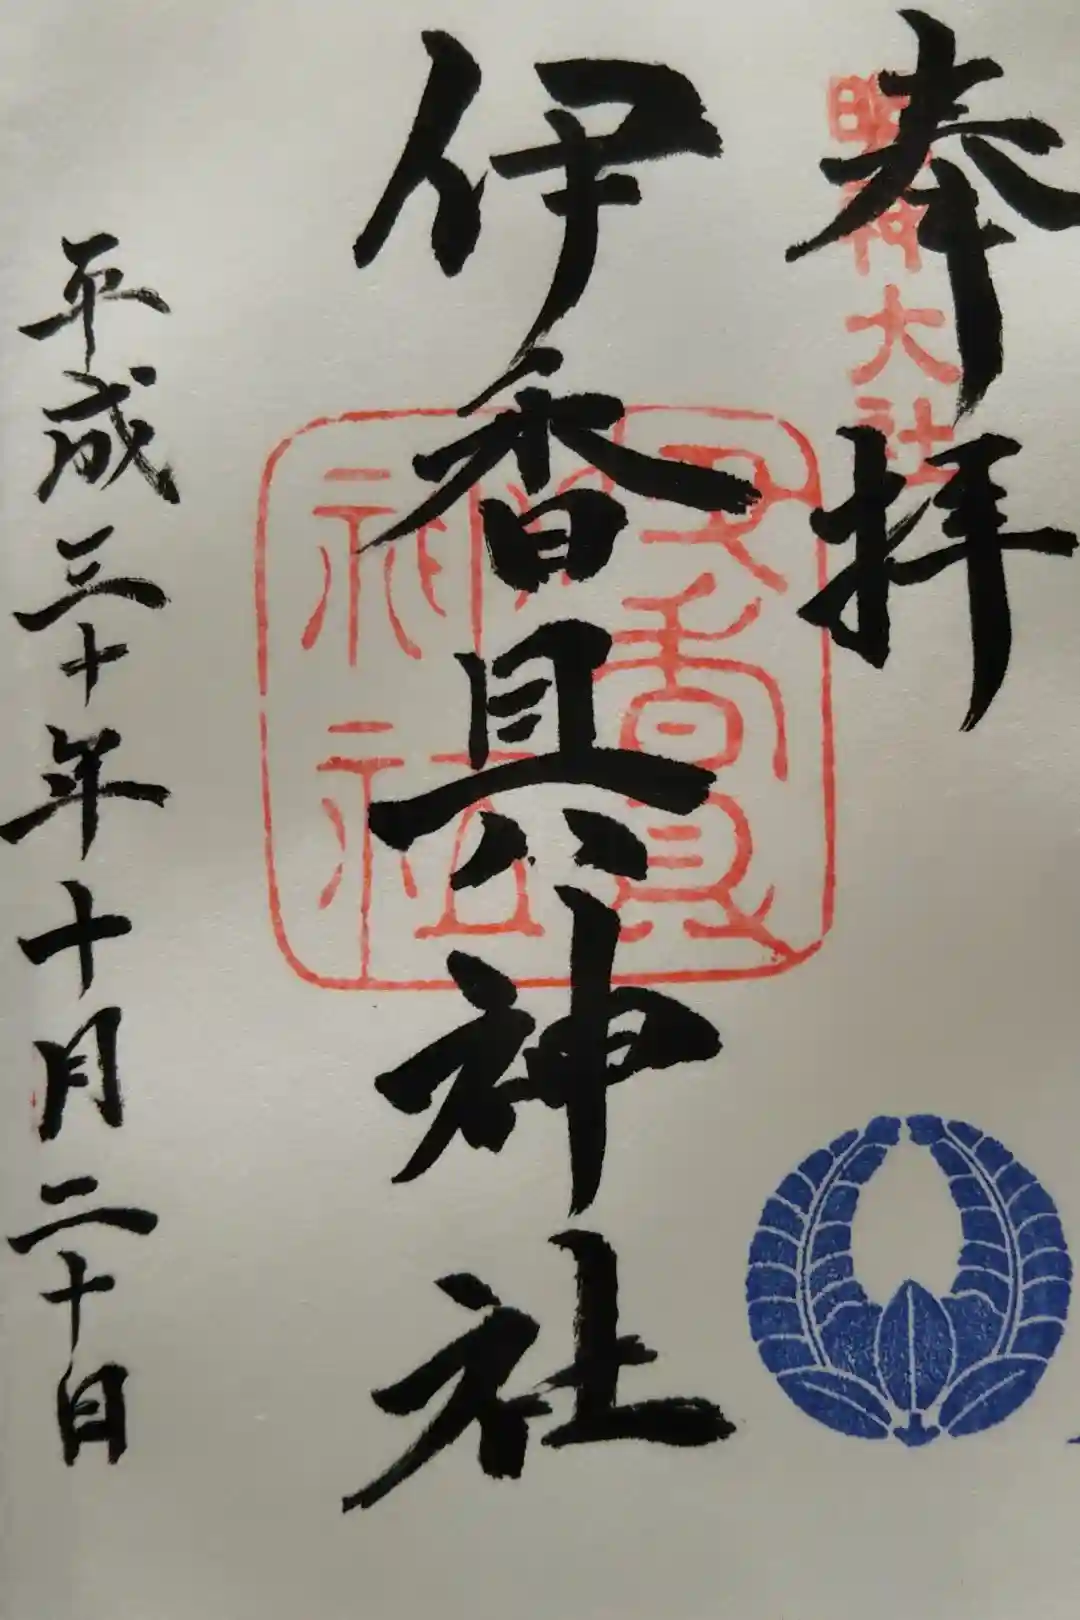 奉拝
明神大社
伊香具神社
平成三十年十月二十日